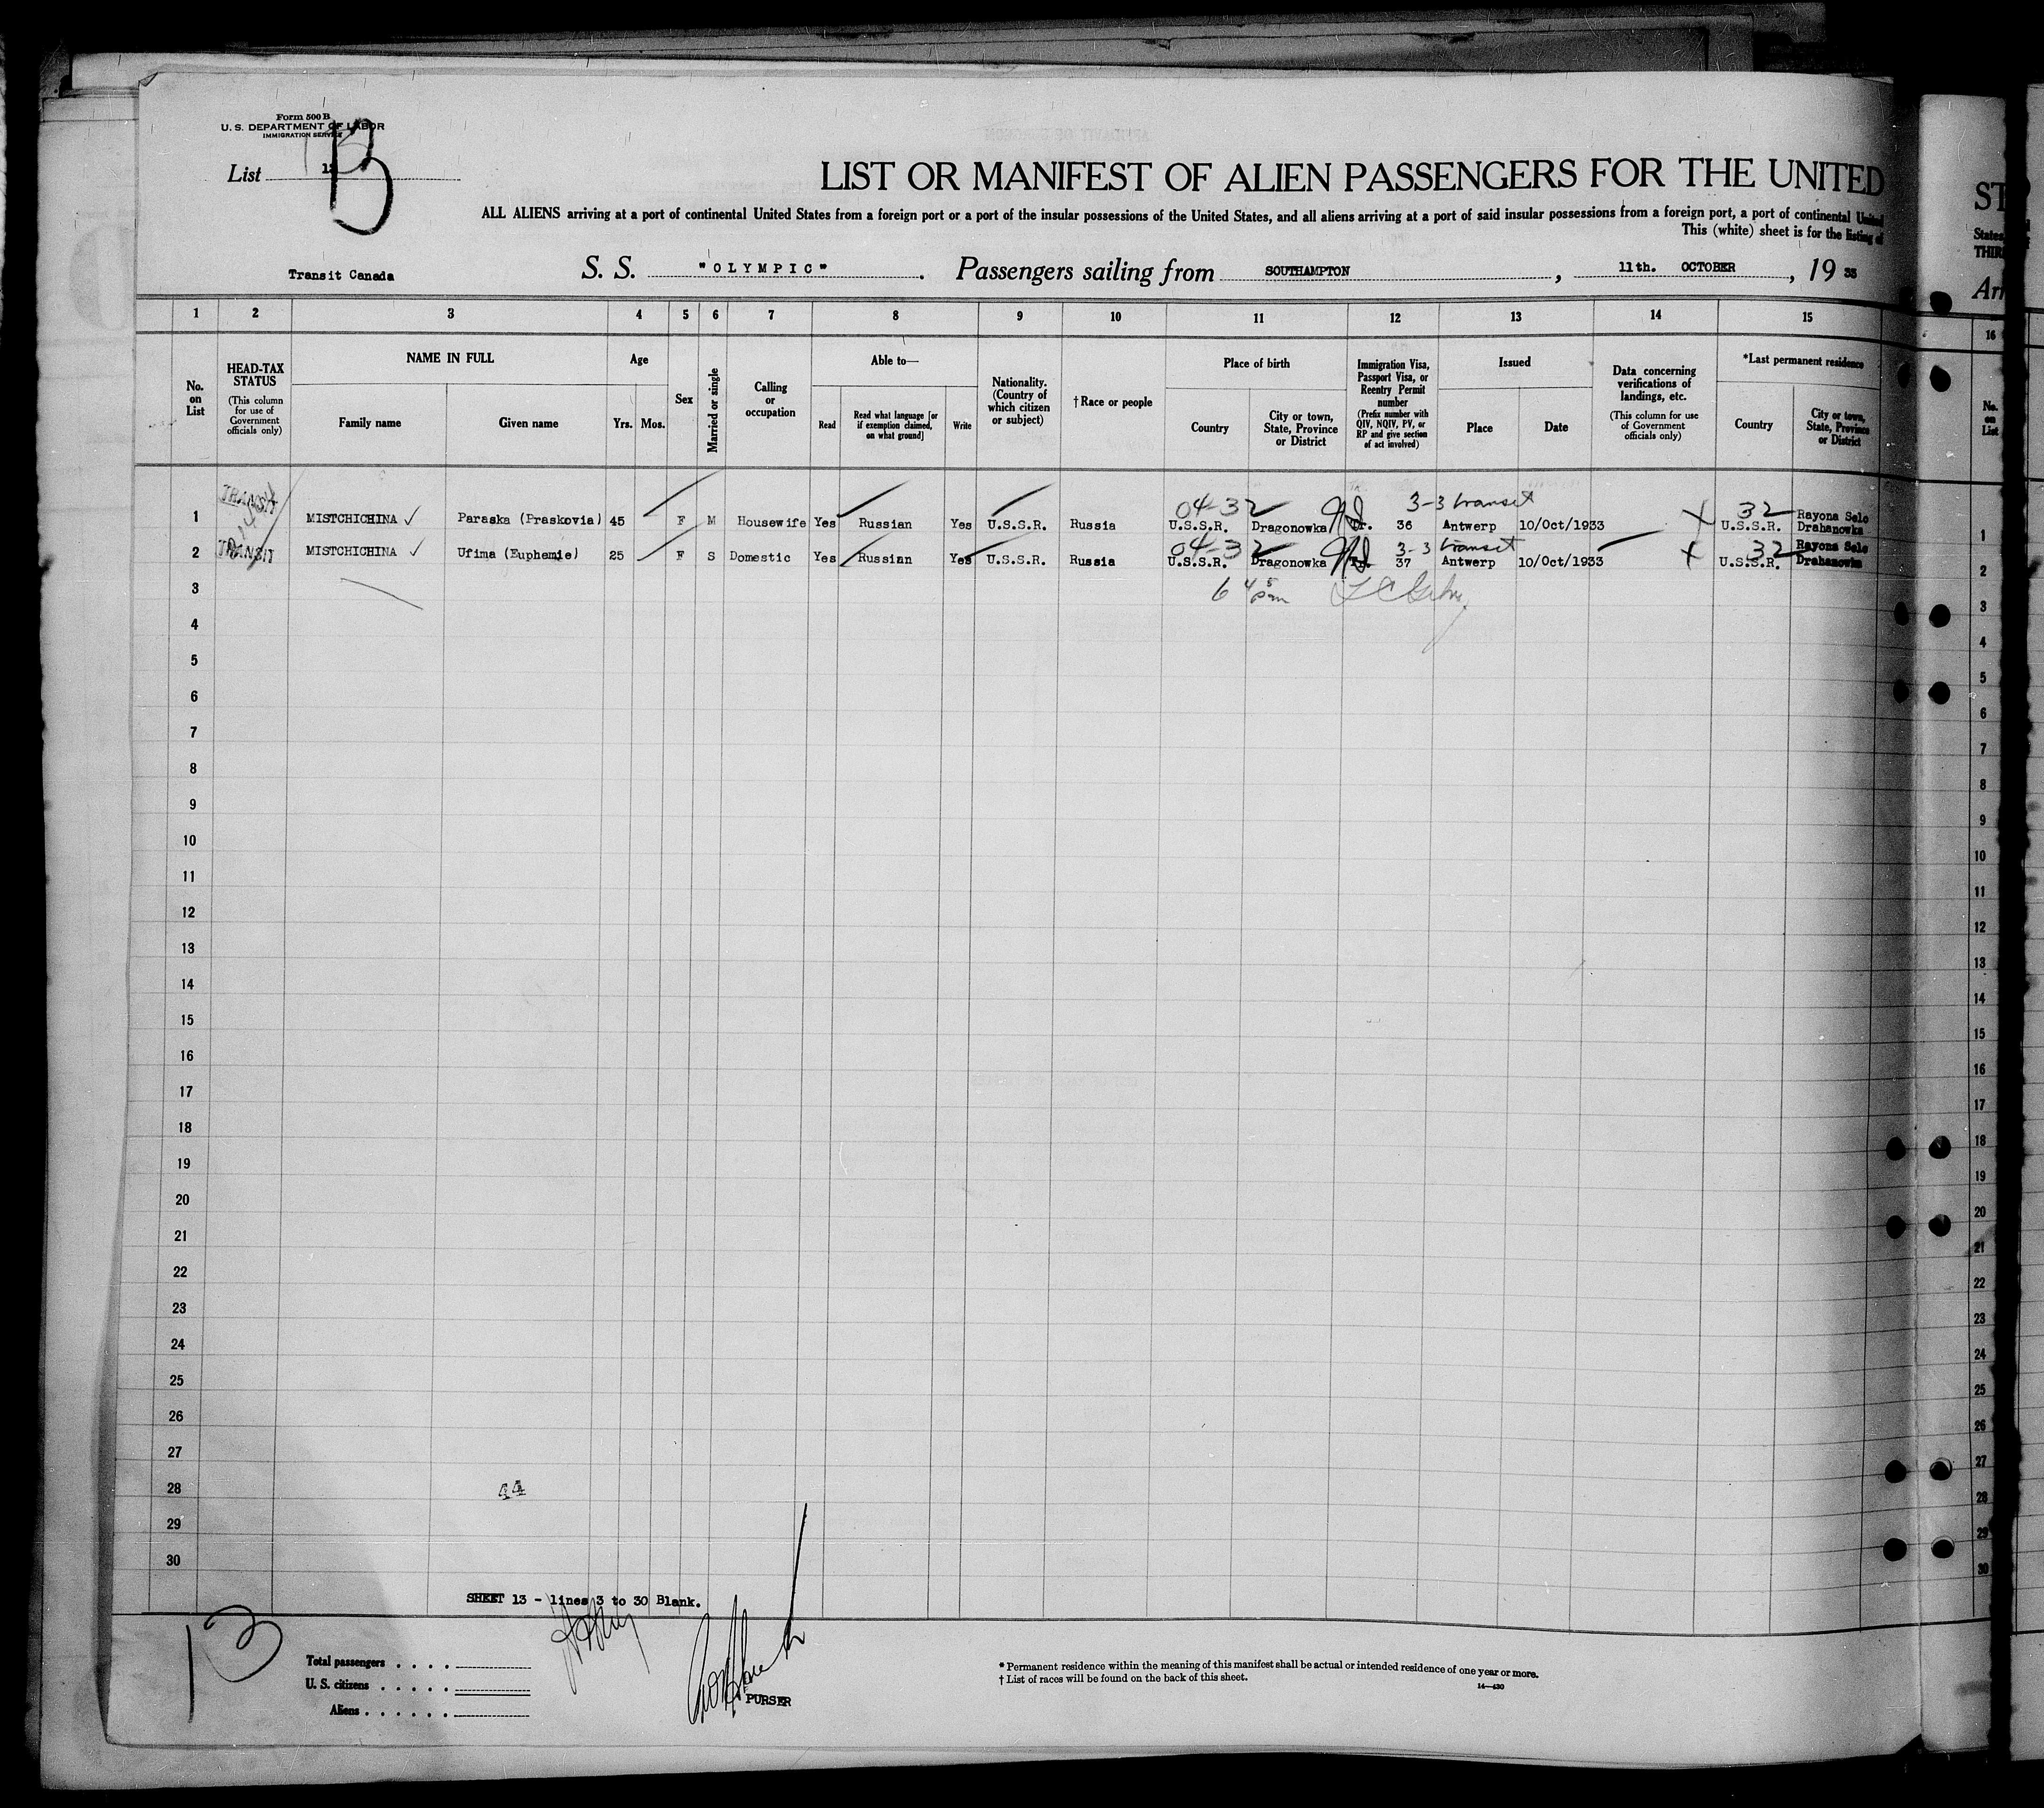 Form 500 B
U. S. DEPARTMENT OF LABOR
IMMIGRATION SERVICE
List 13 B
LIST OR MANIFEST OF ALIEN PASSENGERS FOR THE UNITED
ALL ALIENS arriving at a port of continental United States from a foreign port or a port of the insular possessions of the United States, and all aliens arriving at a port of said insular possessions from a foreign port, a port of continental United
This (white) sheet is for the listing of
Transit Canada S. S. "OLYMPIC" . Passengers sailing from SOUTHAMPTON , 11th. OCTOBER , 19 33
1 2 3 4 5 6 7 8 9 10 11 12 13 14 15
No. on List
HEAD-TAX STATUS
(This column for use of Government officials only)
NAME IN FULL
Family name Given name
Age
Yrs. Mos.
Sex
Married or single
Calling or occupation
Able to—
Read Read what language [or if exemption claimed, on what ground] Write
Nationality. (Country of which citizen or subject)
† Race or people
Place of birth
Country City or town, State, Province or District
Immigration Visa, Passport Visa, or Reentry Permit number
(Prefix number with QIV, NQIV, PV, or RP and give section of act involved)
Issued
Place Date
Data concerning verifications of landings, etc.
(This column for use of Government officials only)
*Last permanent residence
Country City or town, State, Province or District
TRANSIT 04-32 3-3 transit 32
1 MISTCHICHINA Paraska (Praskovia) 45 F M Housewife Yes Russian Yes U.S.S.R. Russia U.S.S.R. Dragonowka Tr. 36 Antwerp 10/Oct/1933 X U.S.S.R. Rayona Selo Drahanowka
TRANSIT 04-32 3-3 transit 32
2 MISTCHICHINA Ufima (Euphemie) 25 F S Domestic Yes Russian Yes U.S.S.R. Russia U.S.S.R. Dragonowka Tr. 37 Antwerp 10/Oct/1933 X U.S.S.R. Rayona Selo Drahanowka
3 6 45 pm
4
5
6
7
8
9
10
11
12
13
14
15
16
17
18
19
20
21
22
23
24
25
26
27
28 44
29
30
SHEET 13 - lines 3 to 30 Blank.
13
Total passengers
U. S. citizens
Aliens
PURSER
* Permanent residence within the meaning of this manifest shall be actual or intended residence of one year or more.
† List of races will be found on the back of this sheet.
14—430
ST
States
THIR
Arr
16
No. on List
1
2
3
4
5
6
7
8
9
10
11
12
13
14
15
16
17
18
19
20
21
22
23
24
25
26
27
28
29
30